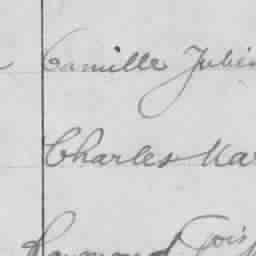 Camille Julien
Charles Mar
Raymond